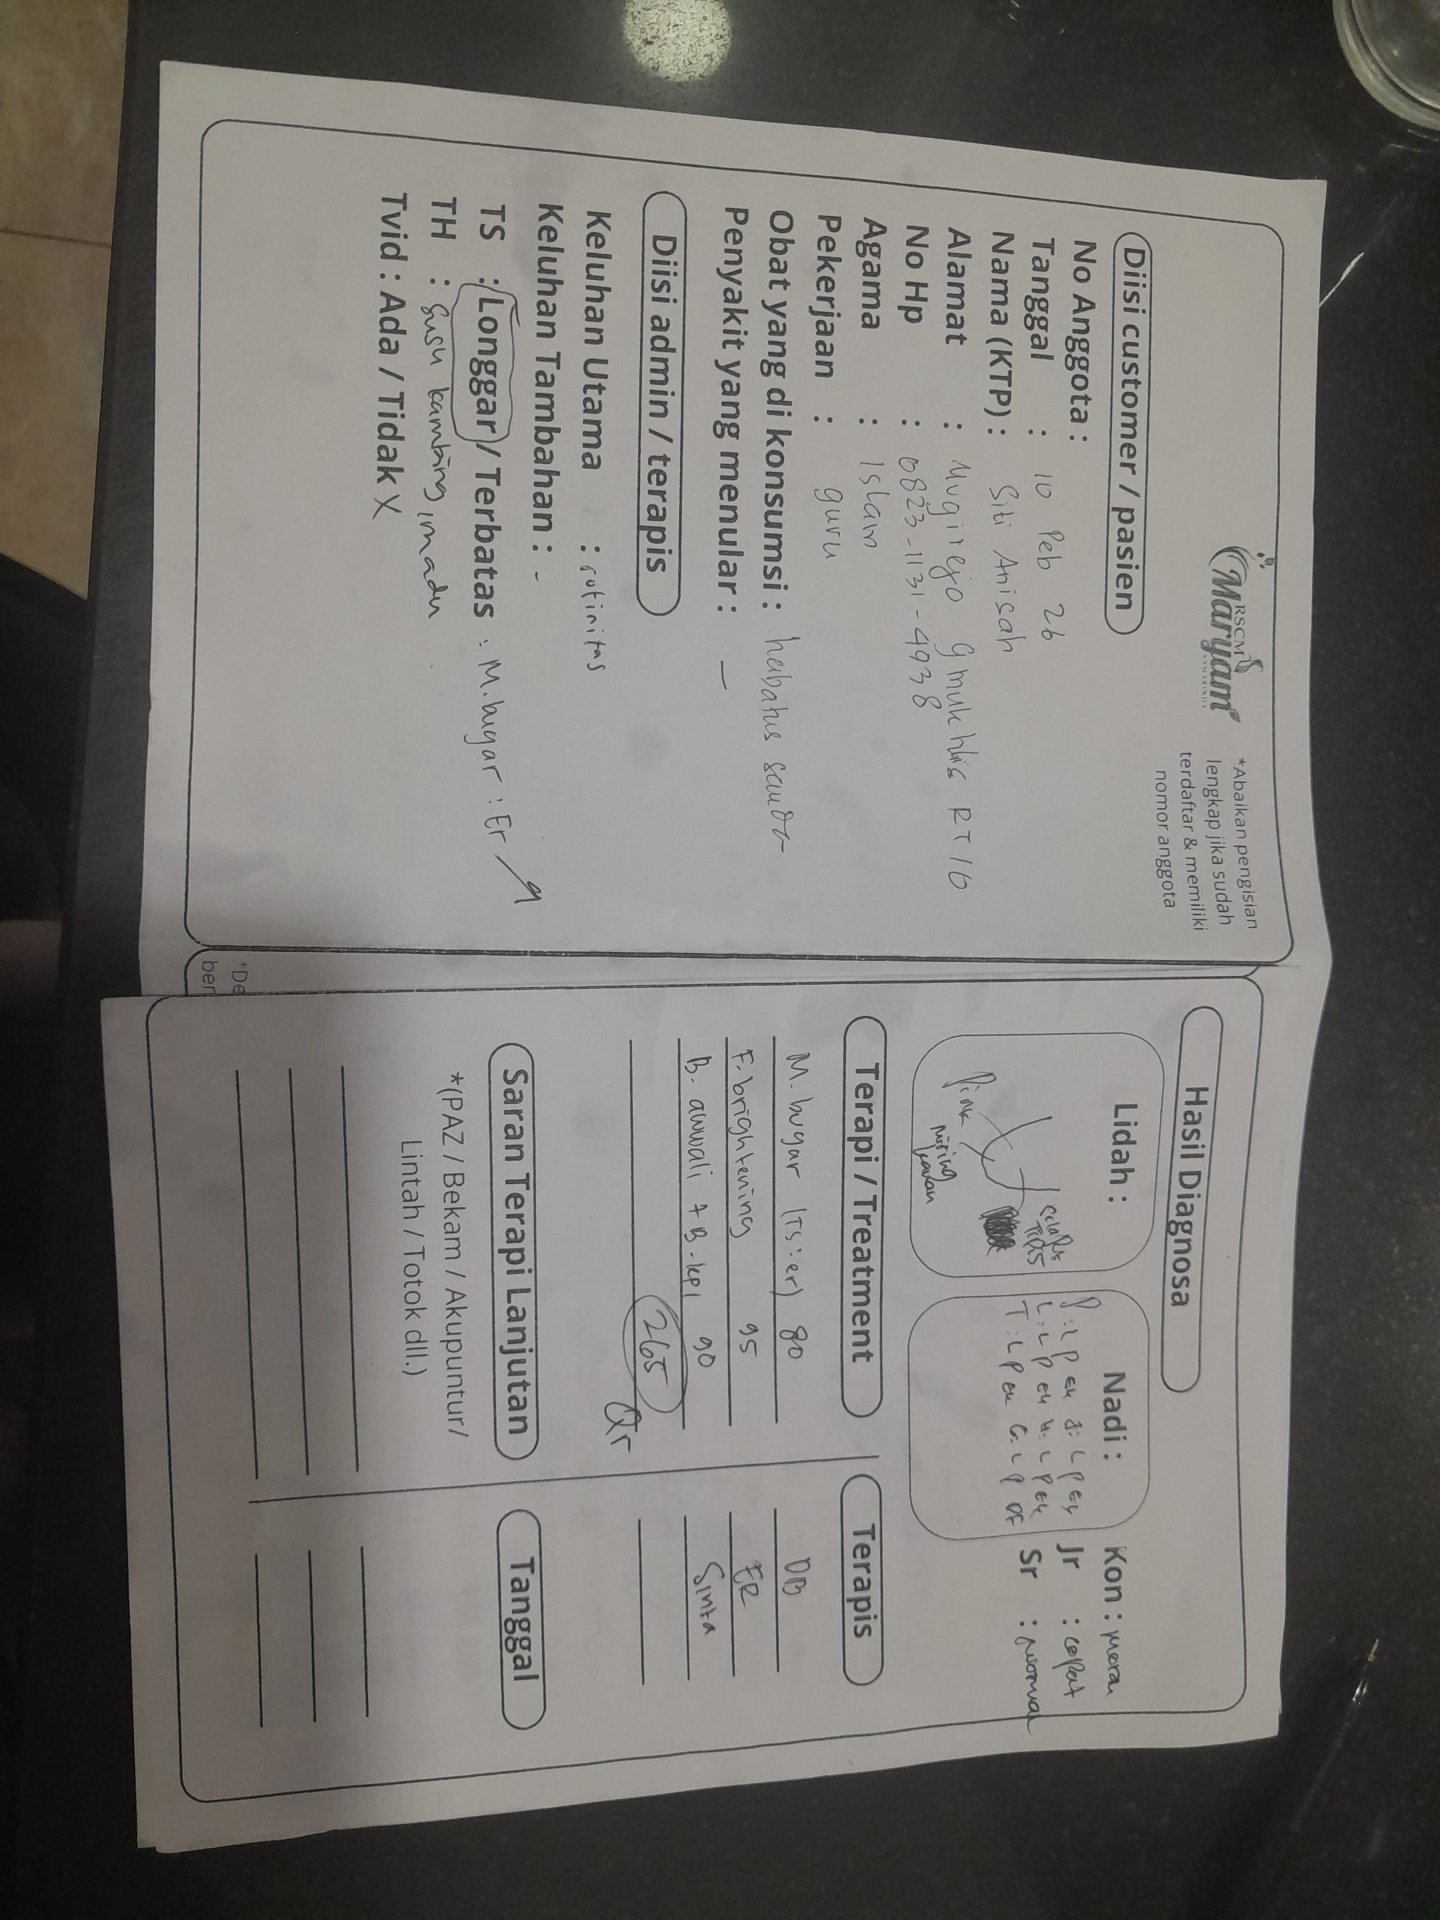 RSCM
Maryam
SAMARINDA
*Abaikan pengisian
lengkap jika sudah
terdaftar & memiliki
nomor anggota
Diisi customer / pasien
No Anggota :
Tanggal : 10 Peb 26
Nama (KTP) : Siti Anisah
Alamat : Mugirejo RT 16
No Hp : 0823-1131-4938
Agama : Islam
Pekerjaan : guru
Obat yang di konsumsi : habatus sauda
Penyakit yang menular : -
Diisi admin / terapis
Keluhan Utama : rutinitas
Keluhan Tambahan : -
TS : Longgar / Terbatas : M.bugar : Er
TH : Susu kambing, madu
Tvid : Ada / Tidak X
*De
ber
Hasil Diagnosa
Lidah :
Pink
selaput
tipis
miring
kanan
Nadi :
P : L P
L : L P
T : L P
Kon :
Jr : cepat
Sr : normal
Terapi / Treatment
Terapis
M. bugar (TS : er) 80 DB
F. brightening 95 ER
B. awwali + B. kpl 90 Sinta
265
Qr
Saran Terapi Lanjutan
Tanggal
*(PAZ / Bekam / Akupuntur/
Lintah / Totok dll.)